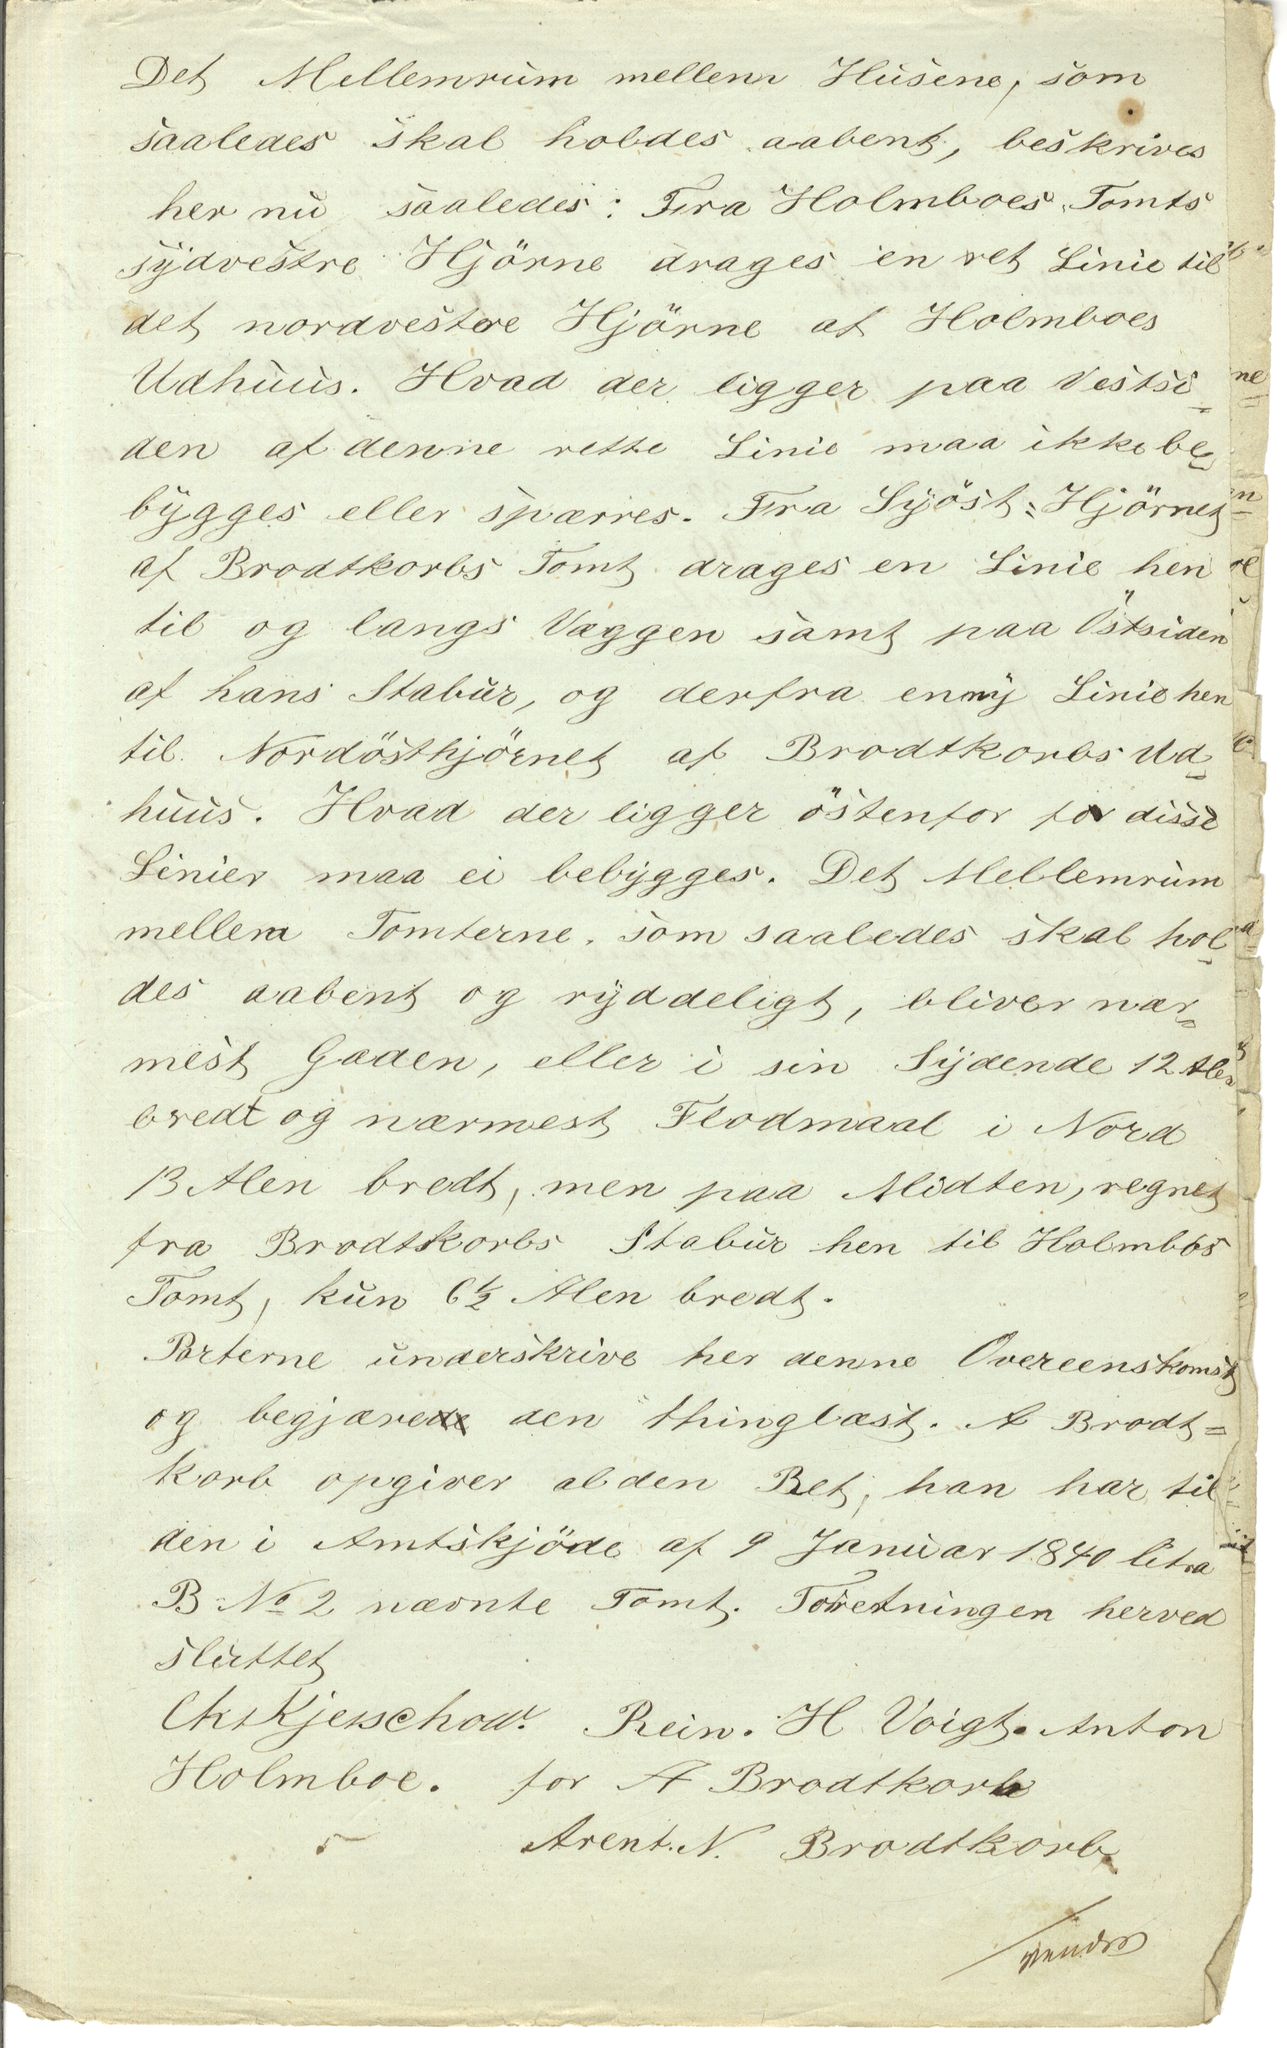 Det Mellemrum mellem Husene, som
saaledes skal holdes aabent, beskrives
her nu saaledes: Fra Holmboes Tomts
sydvestre Hjörne drages en ret Linie til
det nordvestre Hjörne af Holmboes
Udhuus. Hvad der ligger paa Vestsi=
den af denne rette Linie maa ikke be=
bygges eller spærres. Fra Syöst=Hjörnet
af Brodtkorbs Tomt drages en Linie hen
til og langs Væggen samt paa Östsiden
af hans Stabur, og derfra en ny Linie hen
til Nordösthjörnet af Brodtkorbs Ud=
huus. Hvad der ligger östenfor for disse
Linier maa ei bebygges. Det Mellemrum
mellem Tomterne, som saaledes skal hol=
des aabent og ryddeligt, bliver nær=
mest Gaden, eller i sin Sydende 12 Alen
bredt og nærmest Flodmaal i Nord
13 Alen bredt, men paa Midten, regnet
fra Brodtkorbs Stabur hen til Holmboes
Tomt, kun 6½ Alen bredt.
Parterne underskrive her denne Overeenskomst
og begjære den thinglæst. A Brodt=
korb opgiver al den Ret, han har til
den i Amtskjöde af 9 Januar 1840 litra
B No 2 nævnte Tomt. Forretningen herved
sluttet
Chr Kjerschow. Rein. H Voigt. Anton
Holmboe. for A Brodtkorb
Arent. N. Brodtkorb